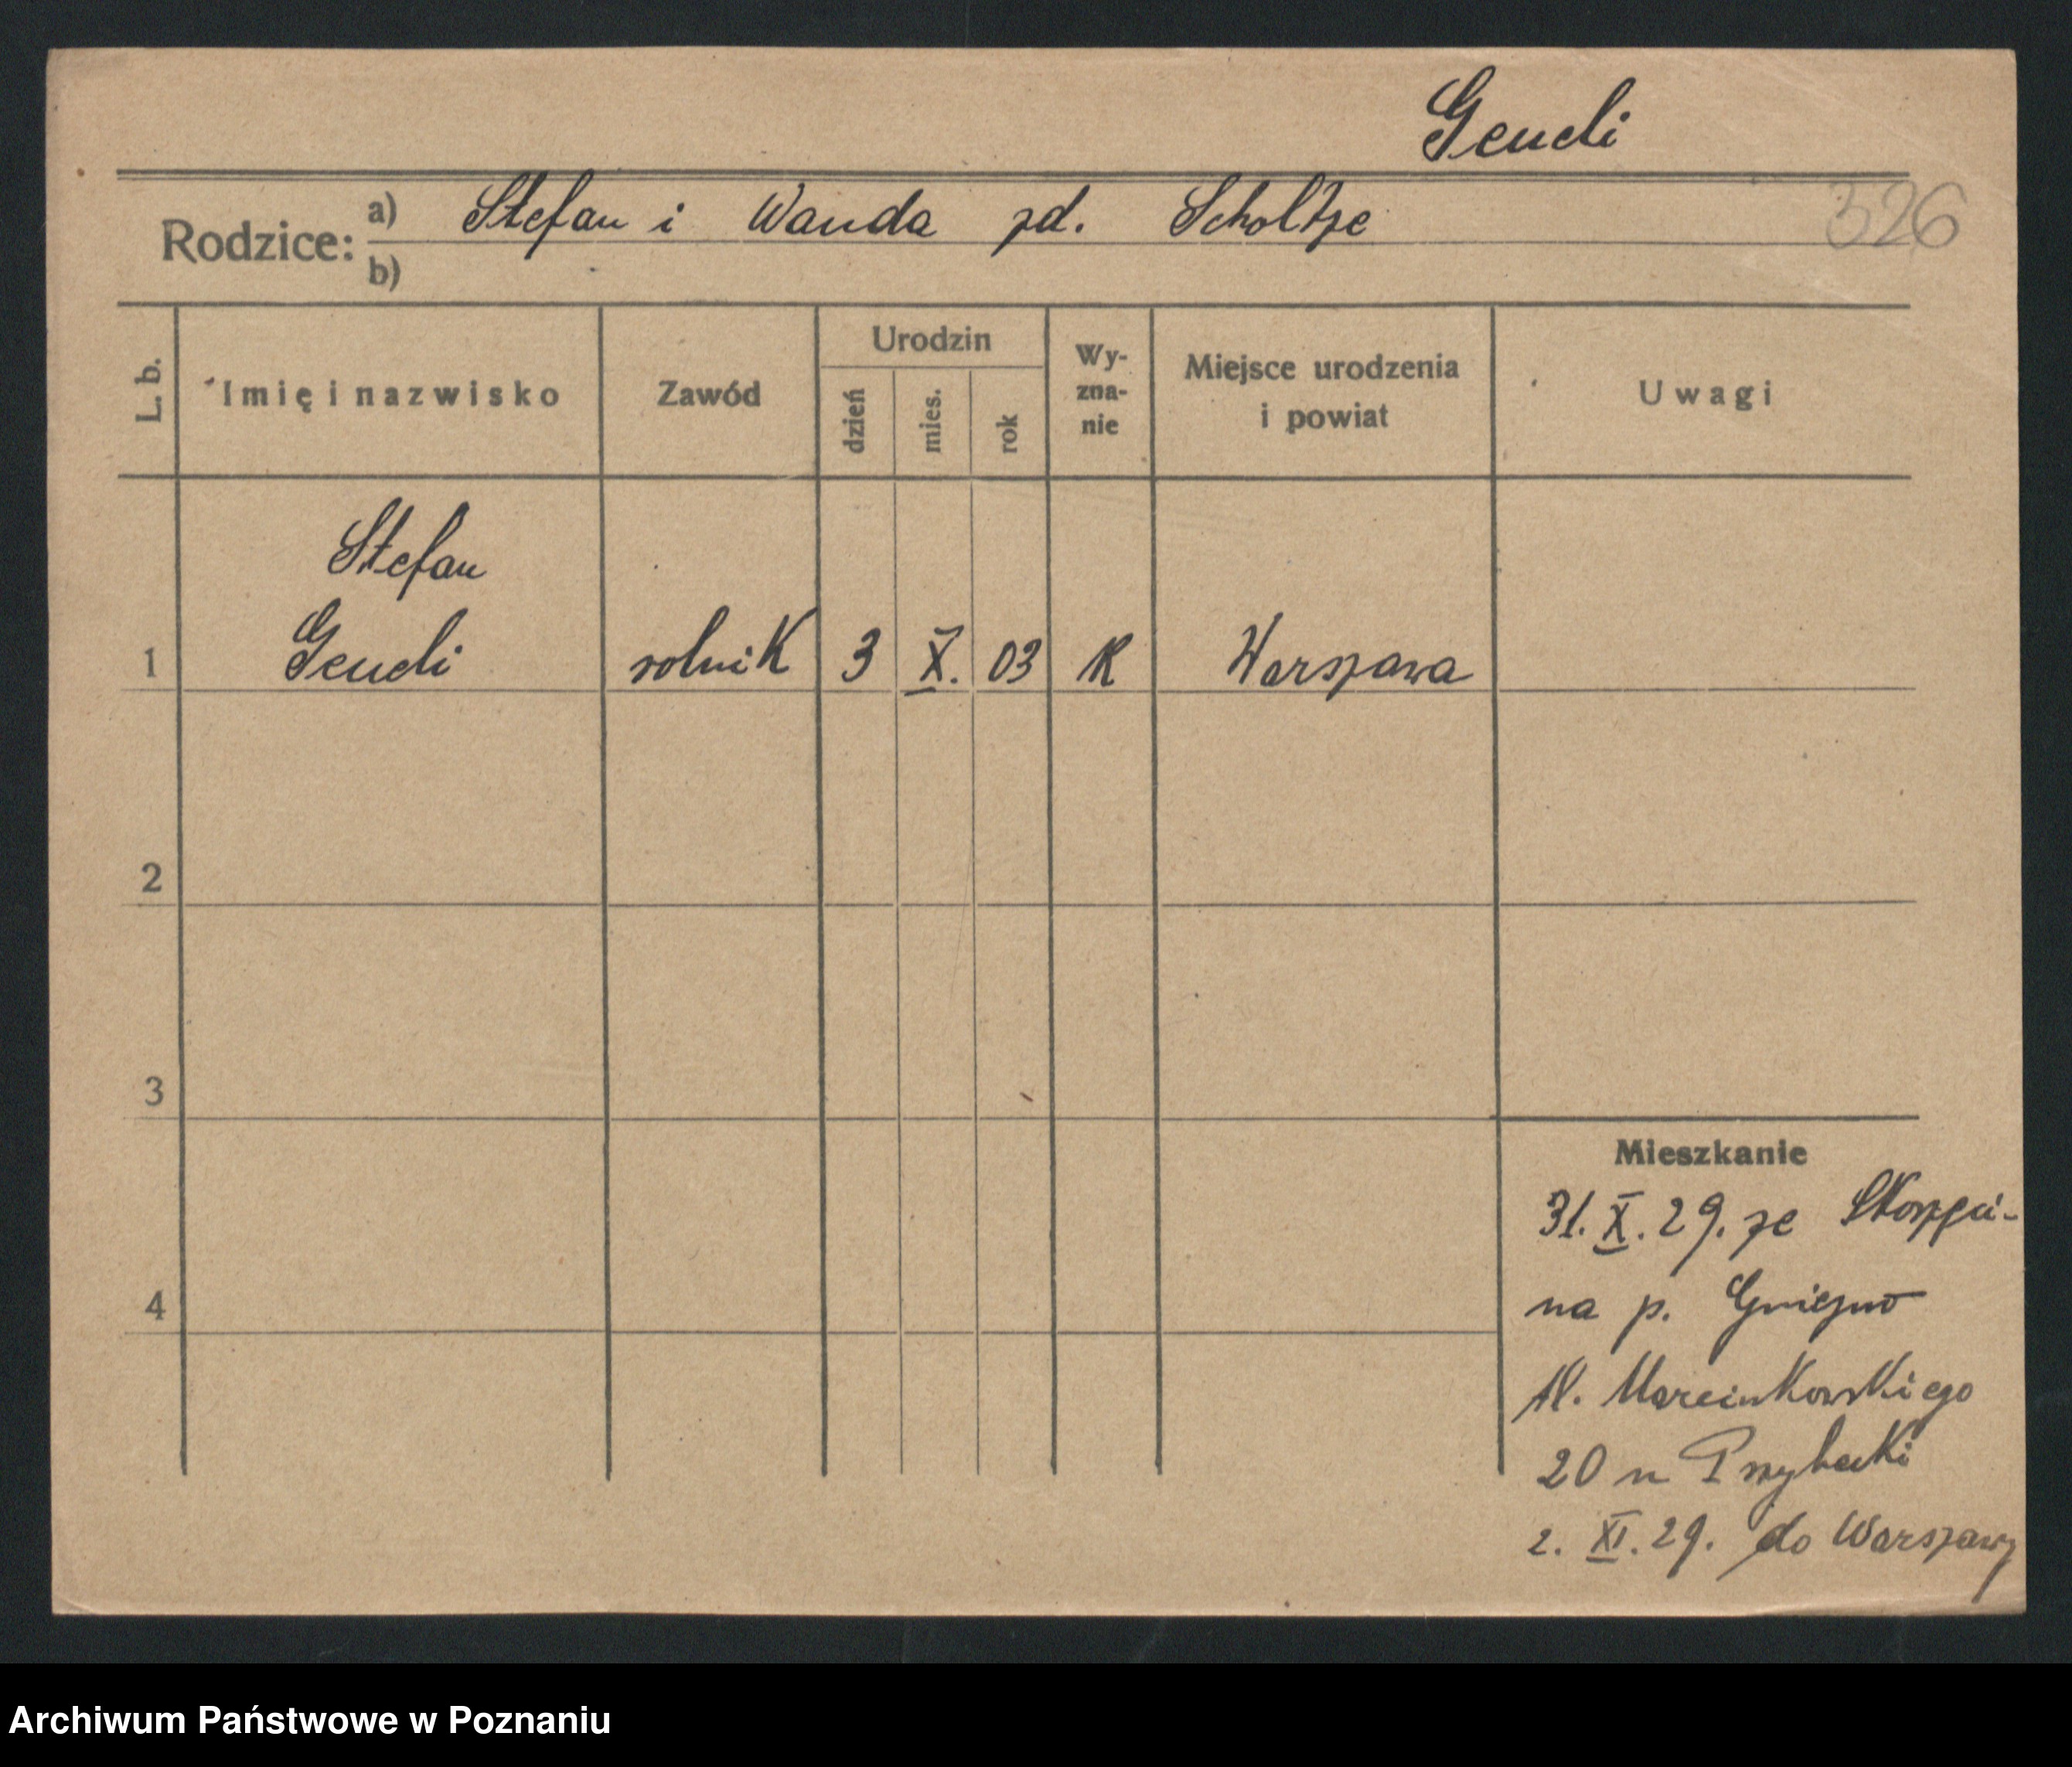 Gendi
326
Rodzice: a) Stefan i Wanda zd. Scholtze
b)
L. b. Imię i nazwisko Zawód Urodzin dzień mies. rok Wy-zna-nie Miejsce urodzenia i powiat Uwagi
Stefan
1 Gendi rolnik 3 X. 03 K Warszawa
2
3
4
Mieszkanie
31. X. 29. ze
na p. Gniezno
Al. Marcinkowskiego
20
2. XI. 29. do Warszawy
Archiwum Państwowe w Poznaniu